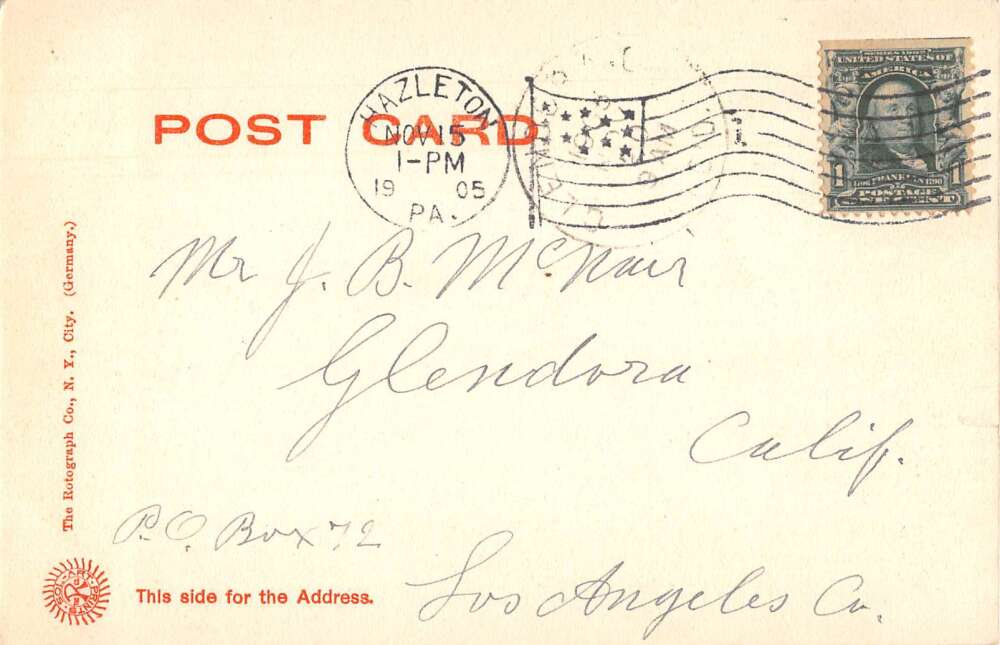 POST CARD
HAZLETON
NOV 15
1-PM
19 05
PA.
SERIES 1902
UNITED STATES OF
AMERICA
1 1706 FRANKLIN 1790 1
POSTAGE
ONE CENT
Mr J. B. McNair
Glendora
Calif.
P.O. Box 72
Los Angeles Co.
The Rotograph Co., N. Y., City. (Germany.)
SOL-ART PRINTS
This side for the Address.